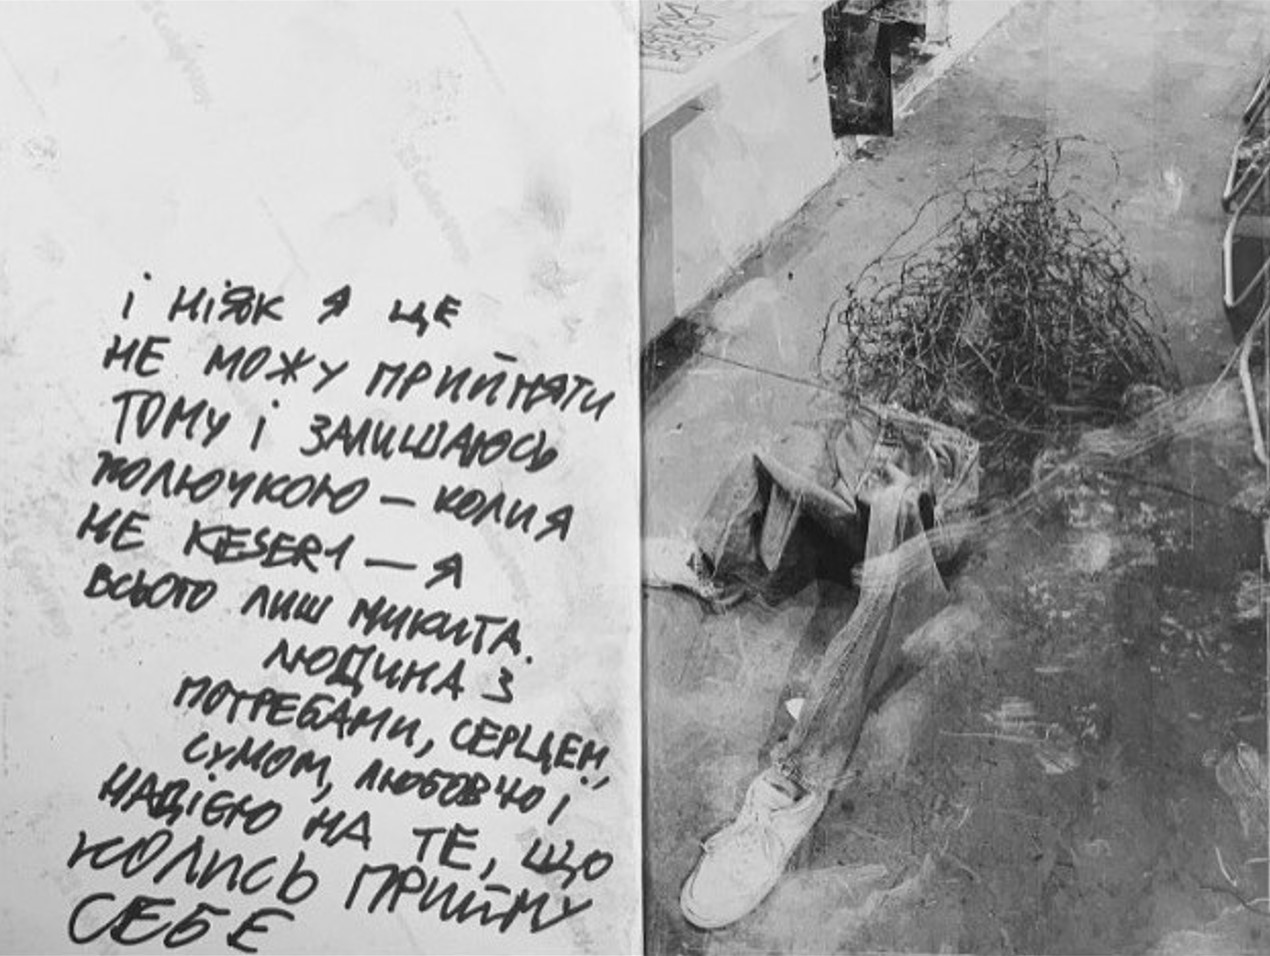 і ніяк я це
не можу прийняти
тому і залишаюсь
колючкою – коли я
не KESER1 – я
всього лиш Микита.
людина з
потребами, серцем,
сумом, любов'ю і
надією на те, що
колись прийму
себе